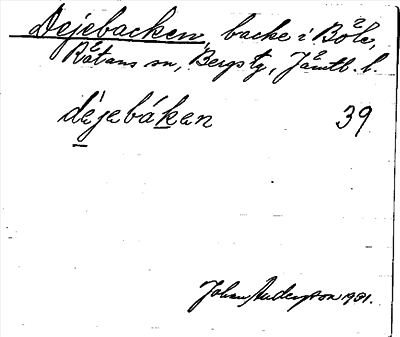 Dejebacken, backe i Böle,
Rätans sn, Bergs tg, Jämtl. l.
déjebáken 39
Johan Anderson 1931.